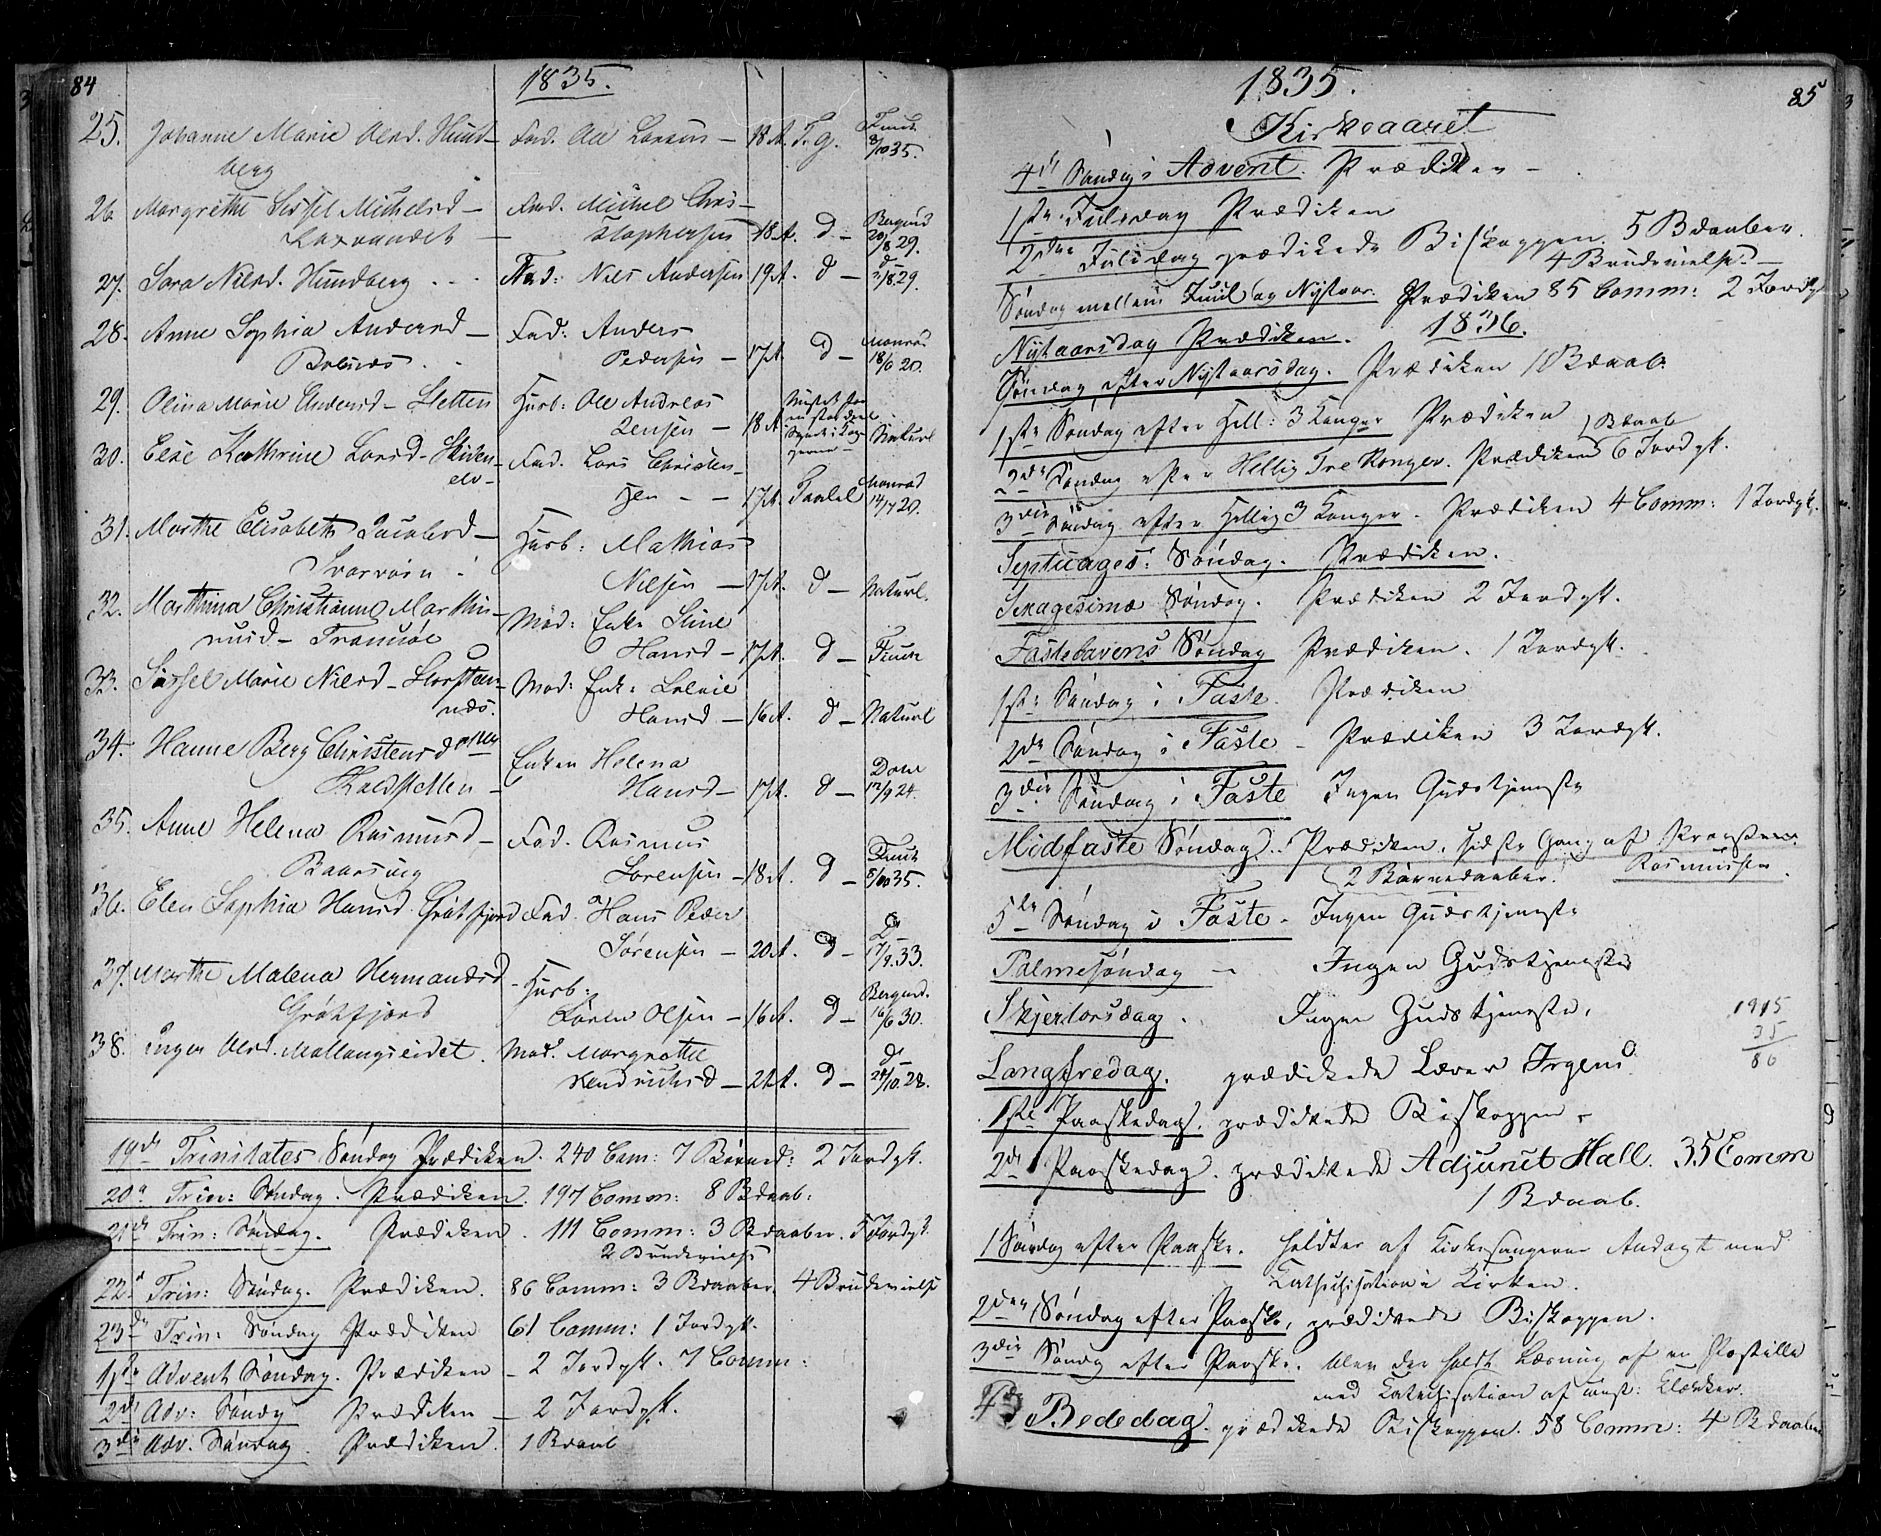 84
1835.
25. Johanne Marie Olesd. Hund- Fad. Ole Larsen - 18 A. T. g. Fuul.
berg 8/10 35.
26 Margrethe Sissel Michelsd - Fad. Michel Chris-
Laxvandet - stophersen 18 A. d - Bergnd 20/8 29.
27. Sara Nielsd. Hundberg . . Fad: Niels Andersen 19 A. d - d 2/8 29.
28. Anne Sophia Andersd - Fad: Anders
Balsnæs . Pedersen - 17 A. d - Monrad 18/6 20.
29. Olina Marie Andersd - Sletten Husb: Ole Andreas
Jensen - 18 A. Naturl
30. Else Kathrine Larsd - Skiden- Fad. Lars Christen-
elv - sen - - 17 A. Taalel Monrad 14/7 20.
31. Marthe Elisabeth Jacobsd - Husb: Mathias
Nielsen - 17 A. d - Naturl.
32. Marthina Christianna Marthi- Mod: Enke Stine
nusd - Tromsøe Hansd - 17 A. d - Fuul
33. Sissel Marie Nielsd - Storsten- Mod: Enke
næs. Hansd - 16 A. d - Naturl
34. Hanne Berg Christensdatter Enken Helena
Kaldsletten - Hansd - 17 A. d - Dow 12/9 24.
35. Anne Helena Rasmusd - Fad. Rasmus
Baarsvig Sørensen - 18 A. d - Fuul 8/10 35.
36. Elen Sophia Hansd. Grøtfjord Fad. Hans Peder
Sørensen - 20 A. d - D 17/9 33.
37. Marthe Malena Hermandsd - Husb:
Grøtfjord Søren Olsen - 16 A. d - Bergnd. 16/6 30.
38. Inger Olesd. Mallangseidet. Mod. Margrethe
Hendrichsd - 21 A. d - d 24/10 28.
19de Trinitates Søndag Prædiken. 240 Com: 7 Børned: 2 Jordpk.
20de Trin: Søndag. Prædiken. 197 Comm: 8 Bdaab:
21de Trin: Søndag. Prædiken. 111 Comm: 3 Bdaaber. 5 Jordpk.
2 Brudevielse
22de Trin: Søndag. Prædiken. 86 Comm: 3 Bdaaber. 4 Brudevielse
23de Trin: Søndag Prædiken 61 Comm: 1 Jordpk.
1ste Advent Søndag. Prædiken - 2 Jordpk. 7 Comm:
2den Adv: Søndg Prædiken - 2 Jordpk.
3die Adv. Søndag. Prædiken. 1 Bdaab
85
1835.
Kirkeaaret
4de Søndag i Advent. Prædiken -
1ste Juledag Prædiken
2den Juledag prædikede Biskoppen 5 Bdaaber.
4 Brudevielse -
Søndag mellem Juul og Nytaar. Prædiken 85 Comm: 2 Jordpk
1836.
Nytaarsdag Prædiken.
Søndag efter Nytaarsdag. Prædiken 1 Bdaab.
1ste Søndag efter Hell: 3 Konger Prædiken
1 Bdaab
2de Søndag efter Hellig Tre Konger. Prædiken 6 Jordpk.
3die Søndag efter Hellig 3 Konger. Prædiken 4 Comm: 1 Jordpk.
Septuages: Søndag. Prædiken.
Sexagesima Søndag. Prædiken 2 Jordpk.
Fastelavens Søndag Prædiken. 1 Jordpk.
1ste Søndag i Faste. Prædiken
2de Søndag i Faste - Prædiken 3 Jordpk.
3die Søndag i Faste Ingen Gudstjeneste
Midfaste Søndag. Prædiken, sidste Gang af Provsten
2 Børnedaaber. Rasmussen.
5te Søndag i Faste - Ingen Gudstjeneste
Palmesøndag - Ingen Gudstjeneste
Skjertorsdag. Ingen Gudstjeneste,
1915
35
80
Langfredag. prædikede Lærer Irgens
1ste Paaskedag. prædikede Biskoppen -
2de Paaskedag. prædikede Adjunct Hall. 35 Comm
1 Bdaab.
1 Søndag efter Paaske. holdtes af Kirkesangeren Andagt med
Kathechisation i Kirken.
2den Søndag efter Paaske, prædikede Biskoppen.
3die Søndg efter Paaske. blev der holdt Læsning af en Postille
med Catechisation af const: Klokker.
Bededag. prædikede Biskoppen. 58 Comm: 4 Bdaaber